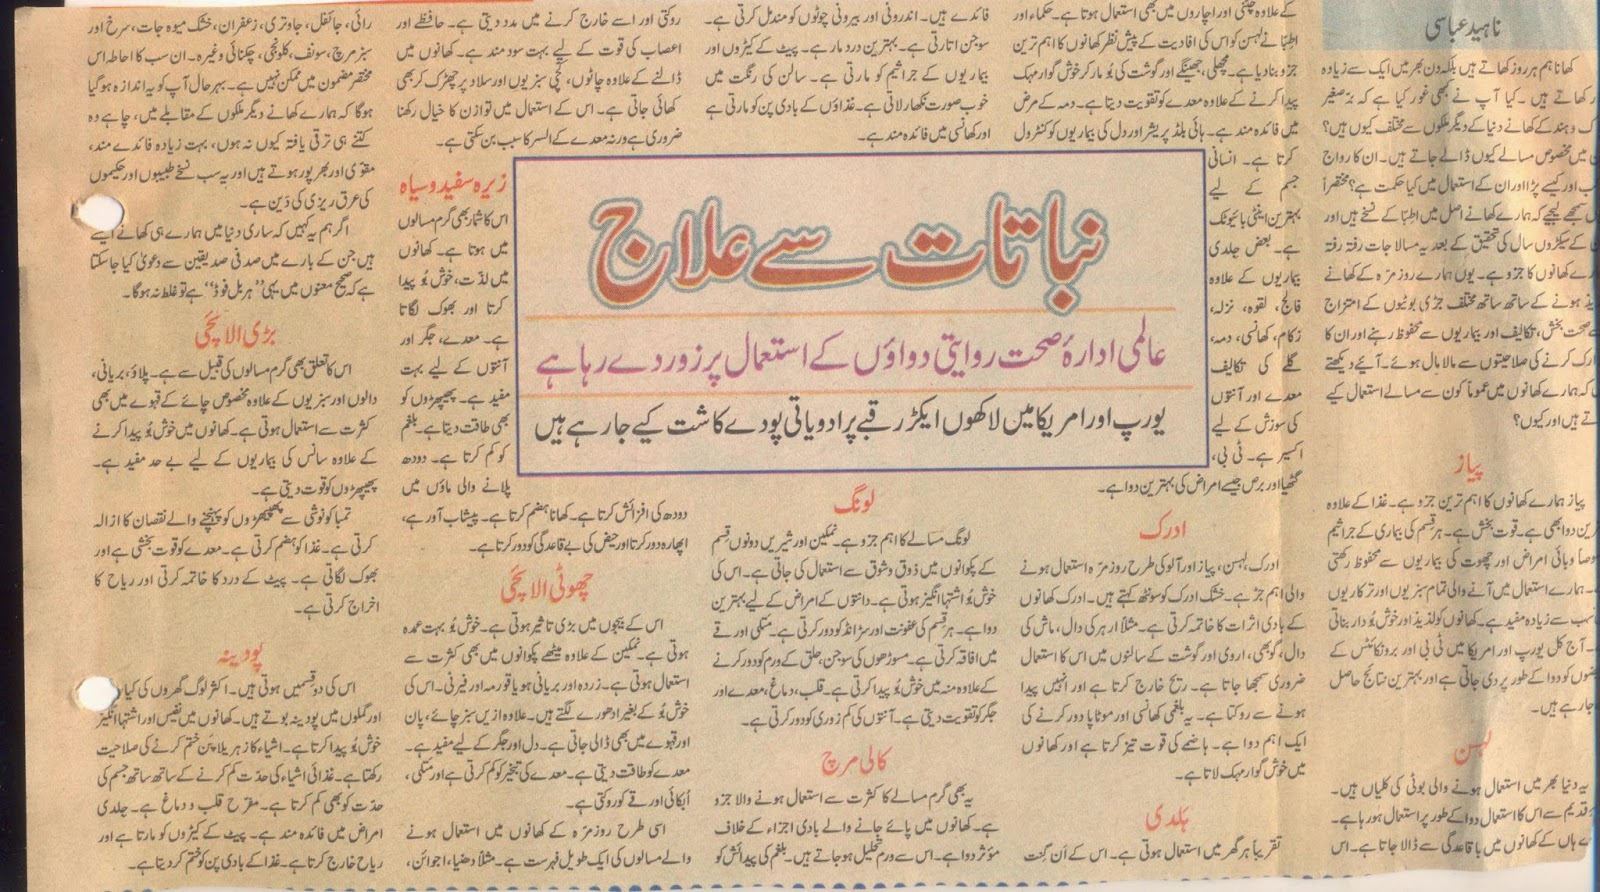 ناہید عباسی
نباتات سے علاج
عالمی ادارۂ صحت روایتی دواؤں کے استعمال پر زور دے رہا ہے
یورپ اور امریکا میں لاکھوں ایکڑ رقبے پر ادویاتی پودے کاشت کیے جا رہے ہیں
کھانا ہم ہر روز کھاتے ہیں بلکہ دن بھر میں ایک سے زیادہ
کھاتے ہیں۔ کیا آپ نے کبھی غور کیا ہے کہ برّصغیر
و ہند کے کھانے دنیا کے دیگر ملکوں سے مختلف کیوں ہیں؟
میں مخصوص مسالے کیوں ڈالے جاتے ہیں۔ ان کا رواج
اور کیسے پڑا اور ان کے استعمال میں کیا حکمت ہے؟ مختصراً
سمجھ لیجیے کہ ہمارے کھانے اصل میں اطبّا کے نسخے ہیں اور
کے سیکڑوں سال کی تحقیق کے بعد یہ مسالا جات رفتہ رفتہ
کھانوں کا جزو ہے۔ یوں ہمارے روزمرّہ کے کھانے
ہونے کے ساتھ ساتھ مختلف جڑی بوٹیوں کے امتزاج
صحت بخش، تکالیف اور بیماریوں سے محفوظ رہنے اور ان کا
کرنے کی صلاحیتوں سے مالا مال ہوئے۔ آئیے دیکھتے
کہ ہمارے کھانوں میں عموماً کون سے مسالے استعمال کیے
ہیں اور کیوں؟
پیاز
پیاز ہمارے کھانوں کا اہم ترین جزو ہے۔ غذا کے علاوہ
دوا بھی ہے۔ قوت بخش ہے۔ ہر قسم کی بیماری کے جراثیم
وبائی امراض اور چھوت کی بیماریوں سے محفوظ رکھتی
ہمارے استعمال میں آنے والی تمام سبزیوں اور ترکاریوں
سب سے زیادہ مفید ہے۔ کھانوں کو لذیذ اور خوش بُو دار بناتی
آج کل یورپ اور امریکا میں ٹی بی اور برونکائٹس کے
کو دوا کے طور پر دی جاتی ہے اور بہترین نتائج حاصل
جا رہے ہیں۔
لہسن
یہ دنیا بھر میں استعمال ہونے والی بوٹی کی کلیاں ہیں۔
قدیم سے اس کا استعمال دوا کے طور پر استعمال ہو رہا ہے۔
ہاں کے کھانوں میں باقاعدگی سے ڈالا جاتا ہے۔ اس
کے علاوہ چٹنی اور اچاروں میں بھی استعمال ہوتا ہے۔ حکماء اور
اطبّا نے لہسن کو اس کی افادیت کے پیش نظر کھانوں کا اہم ترین
جزو بنا دیا ہے۔ مچھلی، جھینگے اور گوشت کی بُو مار کر خوش گوار مہک
پیدا کرنے کے علاوہ معدے کو تقویت دیتا ہے۔ دمہ کے مرض
میں فائدہ مند ہے۔ ہائی بلڈ پریشر اور دل کی بیماریوں کو کنٹرول
کرتا ہے۔ انسانی
جسم کے لیے
بہترین اینٹی بائیوٹک
ہے۔ بعض جلدی
بیماریوں کے علاوہ
فالج، لقوہ، نزلہ،
زکام، کھانسی، دمہ،
گلے کی تکالیف
معدے اور آنتوں
کی سوزش کے لیے
اکسیر ہے۔ ٹی بی،
گٹھیا اور برص جیسے امراض کی بہترین دوا ہے۔
ادرک
ادرک لہسن، پیاز اور آلو کی طرح روزمرّہ استعمال ہونے
والی اہم جڑ ہے۔ خشک ادرک کو سونٹھ کہتے ہیں۔ ادرک کھانوں
کے بادی اثرات کا خاتمہ کرتی ہے۔ مثلاً ارہر کی دال، ماش کی
دال، گوبھی، اروی اور گوشت کے سالنوں میں اس کا استعمال
ضروری سمجھا جاتا ہے۔ ریح خارج کرتا ہے اور انہیں پیدا
ہونے سے روکتا ہے۔ یہ بلغمی کھانسی اور موٹاپا دور کرنے کی
ایک اہم دوا ہے۔ ہاضمے کی قوت تیز کرتا ہے اور کھانوں
میں خوش گوار مہک لاتا ہے۔
ہلدی
تقریباً ہر گھر میں استعمال ہوتی ہے۔ اس کے اَن گِنت
فائدے ہیں۔ اندرونی اور بیرونی چوٹوں کو مندمل کرتی ہے۔
سوجن اتارتی ہے۔ بہترین درد مار ہے۔ پیٹ کے کیڑوں اور
بیماریوں کے جراثیم کو مارتی ہے۔ سالن کی رنگت میں
خوب صورت نکھار لاتی ہے۔ غذاؤں کے بادی پن کو مارتی ہے
اور کھانسی میں فائدہ مند ہے۔
لونگ
لونگ مسالے کا اہم جزو ہے۔ نمکین اور شیریں دونوں قسم
کے پکوانوں میں ذوق و شوق سے استعمال کی جاتی ہے۔ اس کی
خوش بُو اشتہا انگیز ہوتی ہے۔ دانتوں کے امراض کے لیے بہترین
دوا ہے۔ ہر قسم کی عفونت اور سڑاند کو دور کرتی ہے۔ متلی اور قے
میں افاقہ کرتی ہے۔ مسوڑھوں کی سوجن، حلق کے ورم کو دور کرنے
کے علاوہ منہ میں خوش بُو پیدا کرتی ہے۔ قلب، دماغ، معدے اور
جگر کو تقویت دیتی ہے۔ آنتوں کی کم زوری کو دور کرتی ہے۔
کالی مرچ
یہ بھی گرم مسالے کا کثرت سے استعمال ہونے والا جزو
ہے۔ کھانوں میں پائے جانے والے بادی اجزاء کے خلاف
مؤثر دوا ہے۔ اس سے ورم تحلیل ہو جاتے ہیں۔ بلغم کی پیدائش کو
روکتی اور اسے خارج کرنے میں مدد دیتی ہے۔ حافظے اور
اعصاب کی قوت کے لیے بہت سود مند ہے۔ کھانوں میں
ڈالنے کے علاوہ چاٹوں، کچی سبزیوں اور سلاد پر چھڑک کر بھی
کھائی جاتی ہے۔ اس کے استعمال میں توازن کا خیال رکھنا
ضروری ہے ورنہ معدے کے السر کا سبب بن سکتی ہے۔
زیرہ سفید و سیاہ
اس کا شمار بھی گرم مسالوں
میں ہوتا ہے۔ کھانوں
میں لذّت، خوش بُو پیدا
کرتا اور بھوک لگاتا
ہے۔ معدے، جگر اور
آنتوں کے لیے بہت
مفید ہے۔ پھیپھڑوں کو
بھی طاقت دیتا ہے۔ بلغم
کو کم کرتا ہے۔ دودھ
پلانے والی ماؤں میں
دودھ کی افزائش کرتا ہے۔ کھانا ہضم کرتا ہے۔ پیشاب آور ہے،
اپھارہ دور کرتا اور حیض کی بے قاعدگی کو دور کرتا ہے۔
چھوٹی الائچی
اس کے بیجوں میں بڑی تاثیر ہوتی ہے۔ خوش بُو بہت عمدہ
ہوتی ہے۔ نمکین کے علاوہ میٹھے پکوانوں میں بھی کثرت سے
استعمال ہوتی ہے۔ زردہ اور بریانی ہو یا قورمہ اور فیرنی۔ اس کی
خوش بُو کے بغیر ادھورے لگتے ہیں۔ علاوہ ازیں سبز چائے، پان
اور قہوے میں بھی ڈالی جاتی ہے۔ دل اور جگر کے لیے مفید ہے۔
معدے کو طاقت دیتی ہے۔ معدے کی تبخیر کو کم کرتی ہے اور متلی،
اُبکائی اور قے کو روکتی ہے۔
اسی طرح روزمرّہ کے کھانوں میں استعمال ہونے
والے مسالوں کی ایک طویل فہرست ہے۔ مثلاً دھنیا، اجوائن،
رائی، جائفل، جاوتری، زعفران، خشک میوہ جات، سرخ اور
سبز مرچ، سونف، کلونجی، چکنائی وغیرہ۔ ان سب کا احاطہ اس
مختصر مضمون میں ممکن نہیں ہے۔ بہرحال آپ کو یہ اندازہ ہو گیا
ہوگا کہ ہمارے کھانے دیگر ملکوں کے مقابلے میں، چاہے وہ
کتنے ہی ترقی یافتہ کیوں نہ ہوں، بہت زیادہ فائدے مند،
مقوّی اور بھرپور ہوتے ہیں اور یہ سب نسخے طبیبوں اور حکیموں
کی عرق ریزی کی دَین ہے۔
اگر ہم یہ کہیں کہ ساری دنیا میں ہمارے ہی کھانے ایسے
ہیں جن کے بارے میں صد فی صد یقین سے دعویٰ کیا جا سکتا
ہے کہ صحیح معنوں میں یہی ”ہربل فوڈ“ ہے تو غلط نہ ہوگا۔
بڑی الائچی
اس کا تعلق بھی گرم مسالوں کی قبیل سے ہے۔ پلاؤ، بریانی،
دالوں اور سبزیوں کے علاوہ مخصوص چائے کے قہوے میں بھی
کثرت سے استعمال ہوتی ہے۔ کھانوں میں خوش بُو پیدا کرنے
کے علاوہ سانس کی بیماریوں کے لیے بے حد مفید ہے۔
پھیپھڑوں کو قوت دیتی ہے۔
تمباکو نوشی سے پھیپھڑوں کو پہنچنے والے نقصان کا ازالہ
کرتی ہے۔ غذا کو ہضم کرتی ہے۔ معدے کو قوت بخشتی ہے اور
بھوک لگاتی ہے۔ پیٹ کے درد کا خاتمہ کرتی اور ریاح کا
اخراج کرتی ہے۔
پودینہ
اس کی دو قسمیں ہوتی ہیں۔ اکثر لوگ گھروں کی
اور گملوں میں پودینہ بوتے ہیں۔ کھانوں میں نفیس اور اشتہا انگیز
خوش بُو پیدا کرتا ہے۔ اشیاء کا زہریلا پن ختم کرنے کی صلاحیت
رکھتا ہے۔ غذائی اشیاء کی حدّت کم کرنے کے ساتھ ساتھ جسم کی
حدّت کو بھی کم کرتا ہے۔ مفرّح قلب و دماغ ہے۔ جلدی
امراض میں فائدہ مند ہے۔ پیٹ کے کیڑوں کو مارتا ہے اور
ریاح خارج کرتا ہے۔ غذا کے بادی پن کو ختم کر دیتا ہے۔